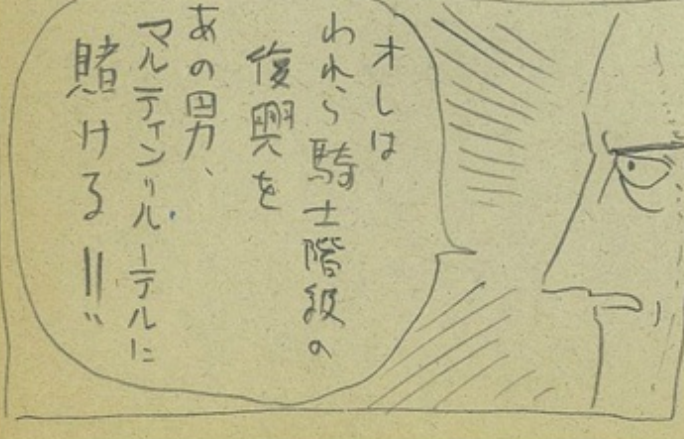 オレは
われら騎士階級の
復興を
あの男、
マルティン・ルーテルに
賭ける!!